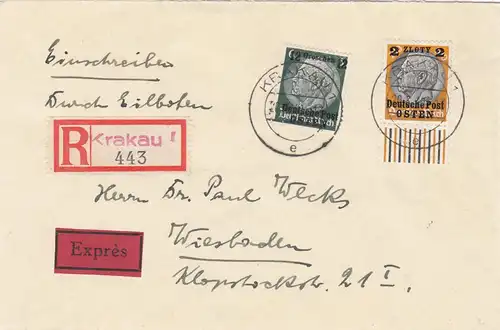 Einschreiben
Durch Eilboten
R Krakau 1
443
12 Groschen 12
Deutsche Post
2 ZLOTY 2
Deutsche Post
OSTEN
e
e
Herrn Dr. Paul Wecks
Wiesbaden
Klopstockstr. 21 I.
Exprès